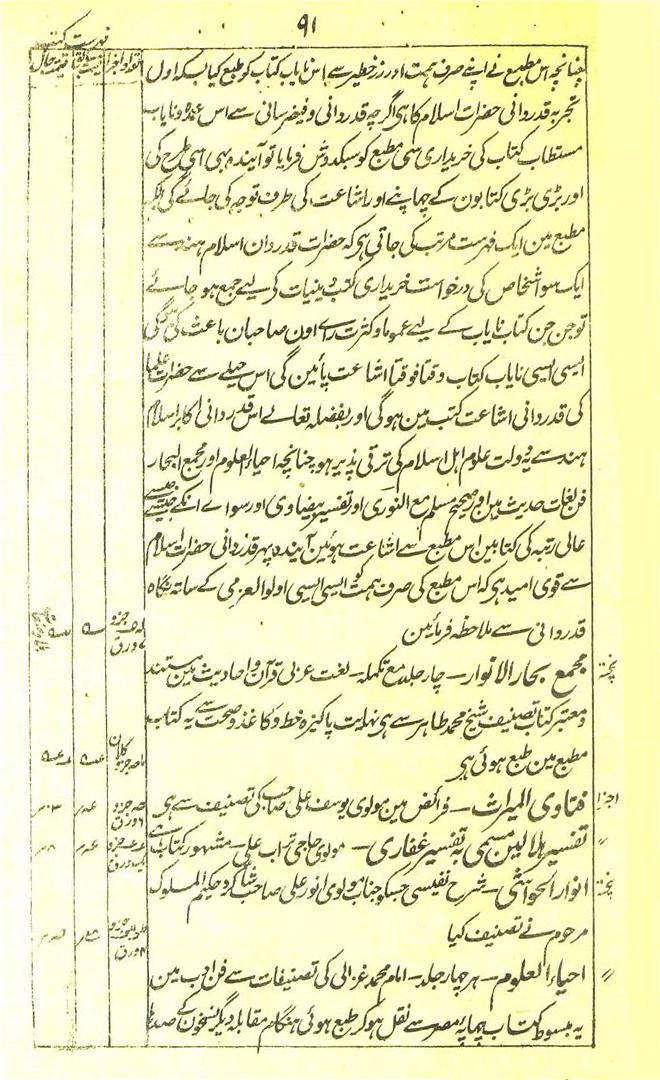 ۹۱
فہرست کتب
چنانچہ اس مطبع نے اپنے صرف ہمت اور زر خطیر سے اس نایاب کتاب کو طبع کیا بسکہ اول
تجربہ قدردانی حضرات اسلام کا ہی اگرچہ قدردانی و فیضرسانی سے اس عمدہ و نایاب
مستطاب کتاب کی خریداری سی مطبع کو سبکدوش فرمایا تو آیندہ بہی اسی طرح کی
اور بڑی بڑی کتابون کے چہاپنے اور اشاعت کی طرف توجہ کی جائے گی بلکہ
مطبع مین ایک فہرست مرتب کی جاتی ہی کہ حضرات قدردان اسلام ہند سے
ایک سو اشخاص کی درخواست خریداری کتب دینیات کے لیے جمع ہو جائے
تو جن جن کتاب نایاب کے لیے عموما و کثرت راے اون صاحبان باعث کی ہوگی
ایسی ایسی نایاب کتاب وقتا فوقتا اشاعت پائین گی اس حیلے سے حضرات علما
کی قدردانی اشاعت کتب مین ہوگی اور بفضلہ تعالے اس قدردانی اکابر اسلام
ہند سے یہ دولت علوم اہل اسلام کی ترقی پذیر ہو چنانچہ احیاء العلوم اور مجمع البحار
فن لغات حدیث مین اور صحیح مسلم مع النووی اور تفسیر بیضاوی اور سواے انکے جیسے جیسے
عالی رتبہ کی کتابین اس مطبع سے اشاعت ہوئین آیندہ پہر قدردانی حضرات اسلام
سے قوی امید ہی کہ اس مطبع کی صرف ہمت کو ایسی ایسی اولوالعزمی کے ساتہ نگاہ
قدردانی سے ملاحظہ فرمائین
پختہ مجمع بحار الانوار — چار جلد مع تکملہ — لغت عربی قرآن و احادیث مین مستند
و معتبر کتاب تصنیف شیخ محمد طاہر سے ہی نہایت پاکیزہ خط و کاغذ و صحت سے یہ کتاب
مطبع مین طبع ہوئی ہی
اجزا فتاوی المیراث — فرائض مین مولوی یوسف علی صاحب کی تصنیف سے ہی
〃 تفسیر ہلالین مسمی بہ تفسیر غفاری — مولوی حاجی تراب علی — مشہور کتاب ہے
پختہ انوار الحواشی — شرح نفیسی جسکو جناب مولوی انور علی صاحب شاگرد حکیم الملوک
مرحوم نے تصنیف کیا
〃 احیاء العلوم — ہر چہار جلد — امام محمد غزالی کی تصنیفات سے فن ادب مین
یہ مبسوط کتاب چہاپہ مصر سے نقل ہوکر طبع ہوئی ہنگام مقابلہ دیگر نسخون کے صدہا